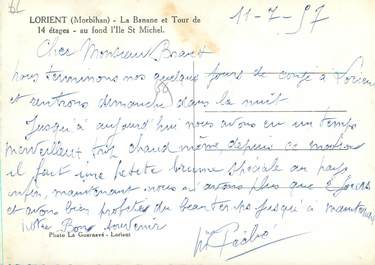 LORIENT (Morbihan) - La Banane et Tour de
14 étages - au fond l'Ile St Michel.
11-7-57
Cher Monsieur
nous terminons nos quelque jours de congé à Lorient
et rentrons dimanche dans la nuit
Jusqu'à aujourd'hui nous avons eu un temps
merveilleux, trop chaud même depuis ce matin
il fait une petite brume spéciale au pays
enfin, maintenant nous n'avons plus que 2 jours
et avons bien profités du beau temps jusqu'à maintenant
notre Bon souvenir
Photo La Guarnevé - Lorient